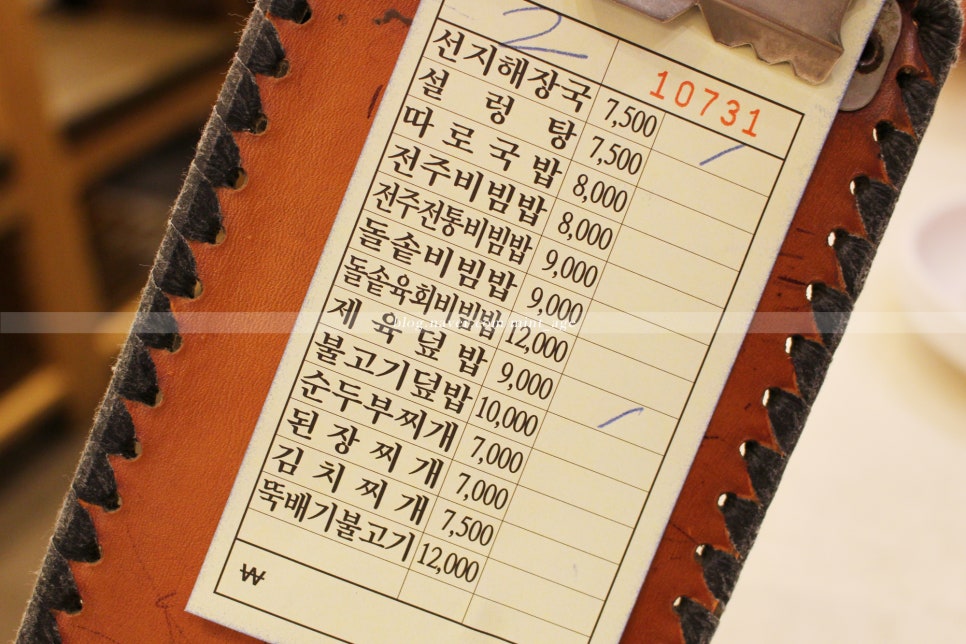 2
10731
선지해장국 7,500
설렁탕 7,500
따로국밥 8,000
전주비빔밥 8,000
전주전통비빔밥 9,000
돌솥비빔밥 9,000
돌솥육회비빔밥 12,000
제육덮밥 9,000
불고기덮밥 10,000
순두부찌개 7,000
된장찌개 7,000
김치찌개 7,500
뚝배기불고기 12,000
₩